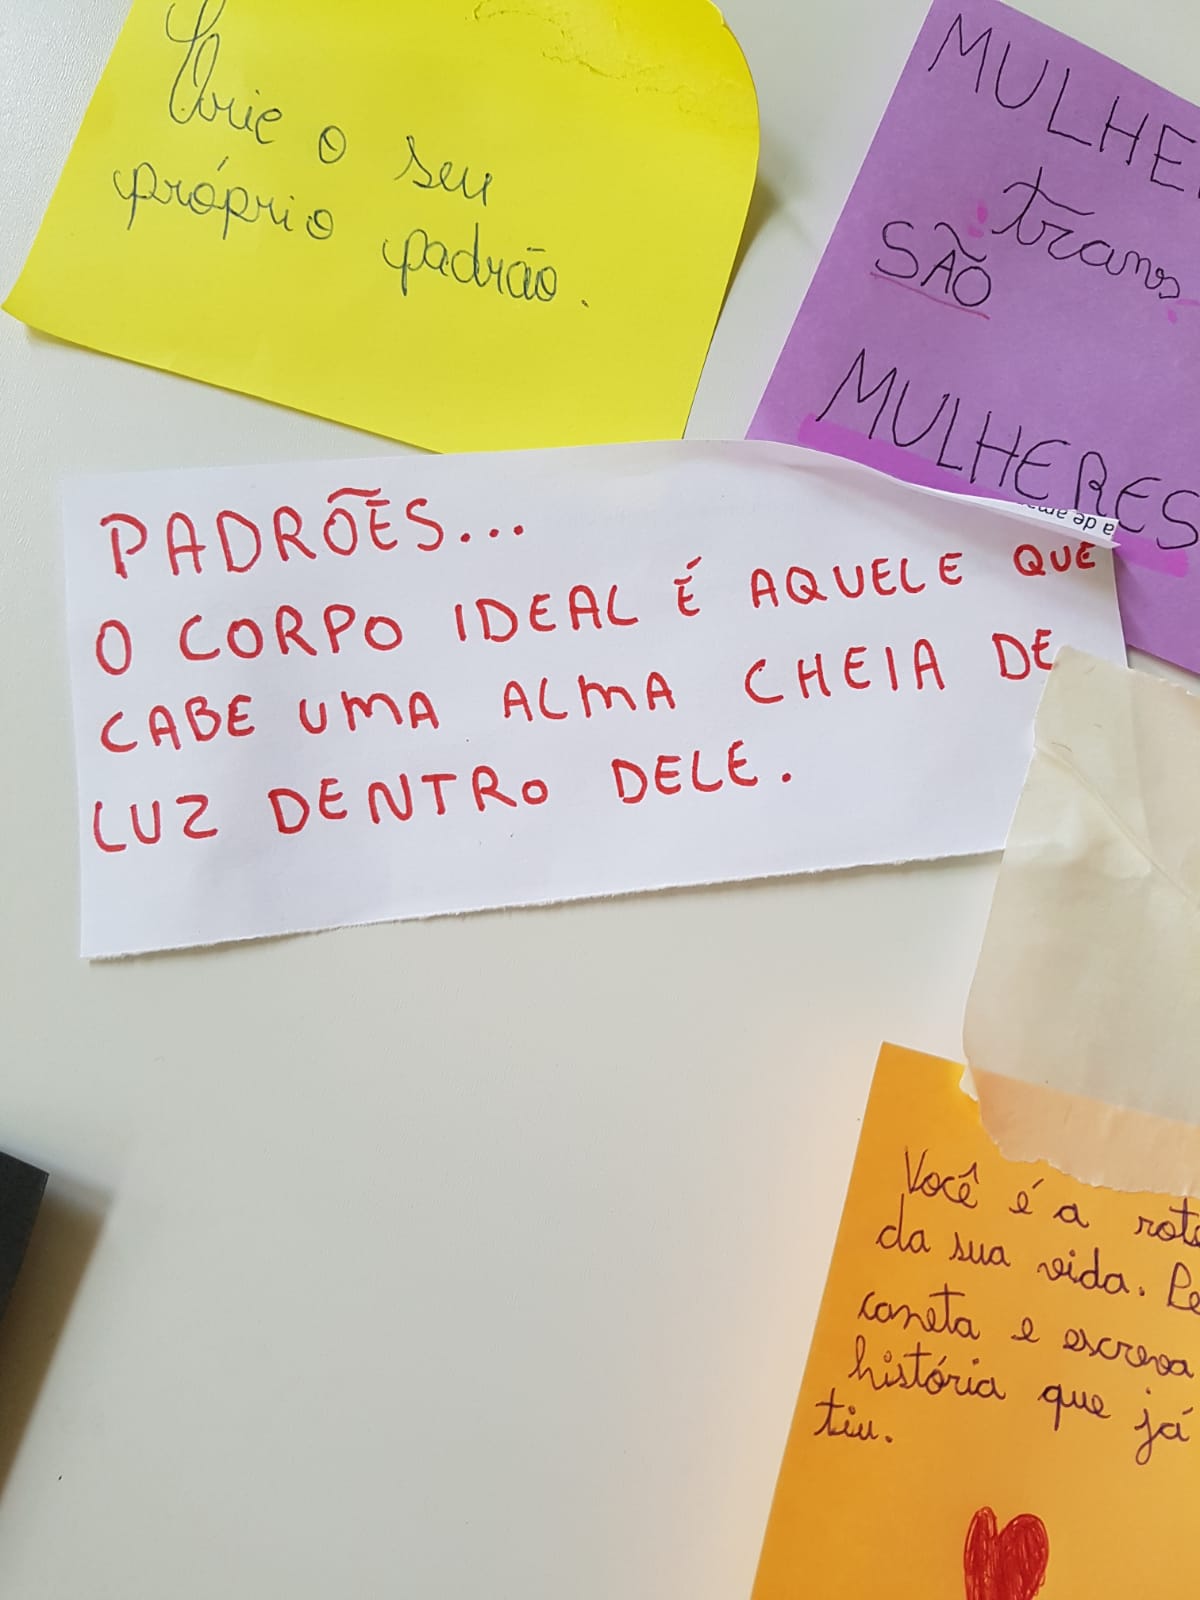 Crie o seu
próprio padrão.
MULHE
trans
SÃO
MULHERES
a de
PADRÕES...
O CORPO IDEAL É AQUELE QUE
CABE UMA ALMA CHEIA DE
LUZ DENTRO DELE.
Você é a rot
da sua vida. Pe
caneta e escreva
história que já
tiu.